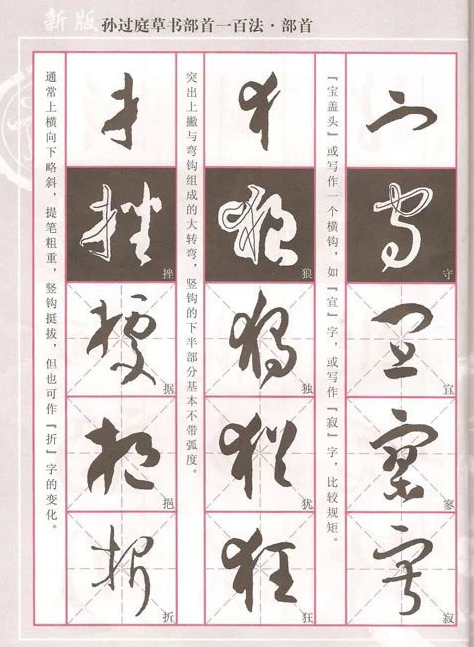 新版 孙过庭草书部首一百法·部首
守
宜
寥
寂
『宝盖头』或写作一个横钩，如『宜』字，或写作『寂』字，比较规矩。
狼
独
犹
狂
突出上撇与弯钩组成的大转弯，竖钩的下半部分基本不带弧度。
挫
据
挹
折
通常上横向下略斜，提笔粗重，竖钩挺拔，但也可作『折』字的变化。